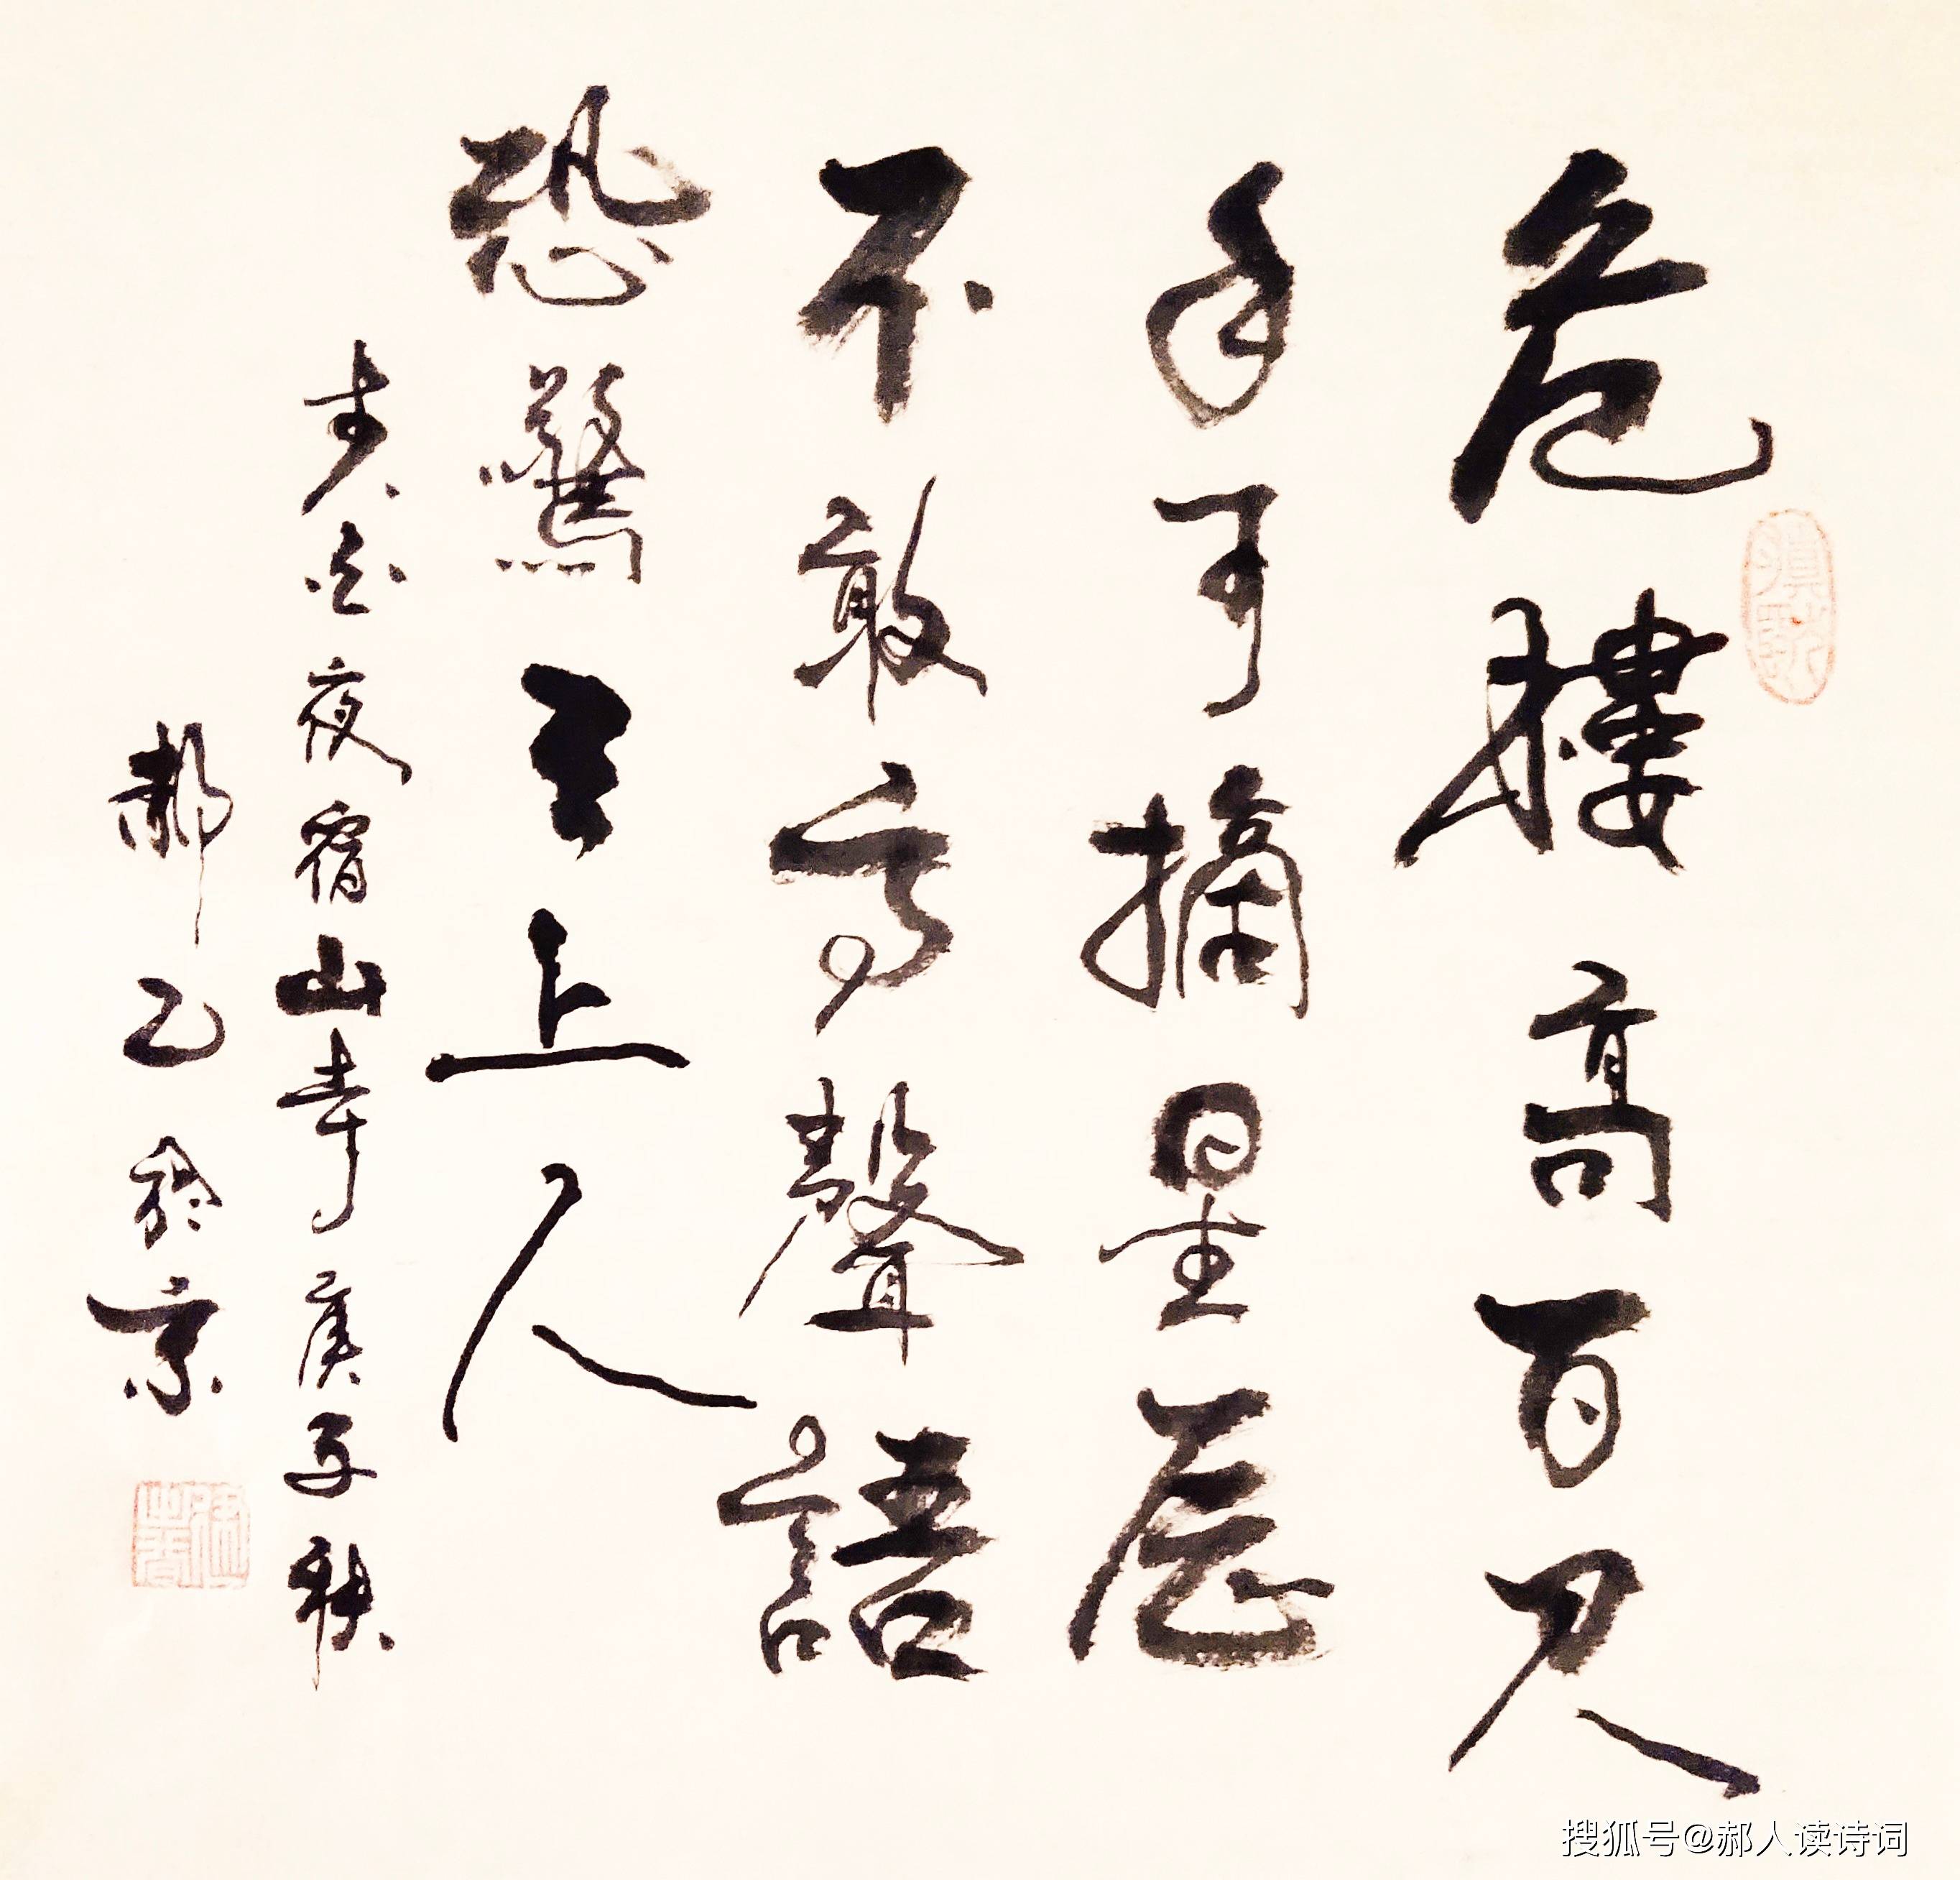 危樓高百尺
手可摘星辰
不敢高聲語
恐驚天上人
書太白夜宿山寺庚子秋
郝乙於京
搜狐号@郝人读诗词